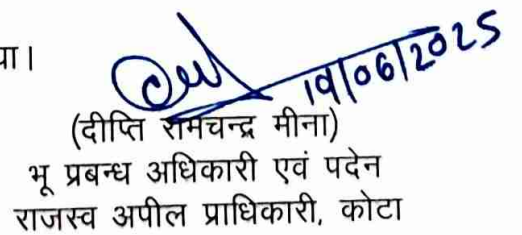 या।
19/06/2025
(दीप्ति रामचन्द्र मीना)
भू प्रबन्ध अधिकारी एवं पदेन
राजस्व अपील प्राधिकारी, कोटा